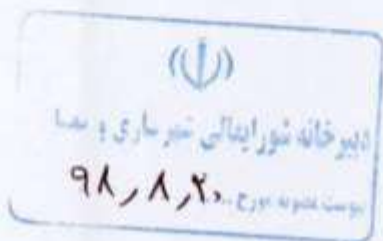 دبیرخانه شورایعالی شهرسازی و معما
پیوست مصوبه مورخ ..۹۸٫۸٫۲۰